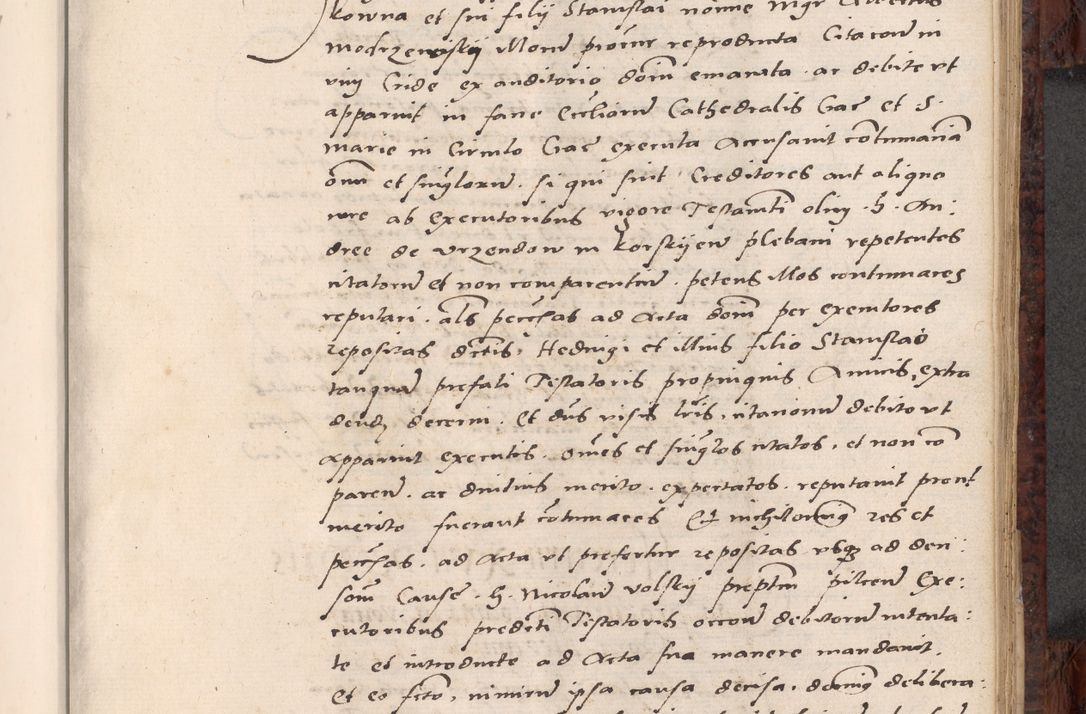 kowna et sui filij Stanislai nomine mgr Albertus
Modrzewskij illorum procur reproducta Citacione in
vim Cride ex auditorio domini emanata . ac debite vt
apparuit in facie Ecclesiarum Cathedralis Crac et S.
marie in Circulo Crac executa Accusauit contumaciam
omnium et singlorum . si qui sint Creditores aut aliquo
iure ab executoribus vigore Testamenti olim . h . An:
dree de vrzendow in korskijen plebani repetentes
citatorum et non comparentium . petens illos contumaces
reputari . als pecias ad Acta domini per executores
repositas dictis, Heduigi et illius filio Stanislao
tanquam prefati Testatoris propinquis Amicis, extra
dendas decerni . Et dns visis lris, citacionum debito vt
apparuit executis . omnes et singlos citatos, et non com
paren . ac diutius merito . expectatos . reputauit pront
merito fuerant contumaces Et nichilominus res et
pecias . ad Acta vt prefertur repositas vsque ad deci:
som Cause . h . Nicolaum volskij preptem pilcen Exe:
cutoribus predicti Testatoris occone debitorum intenta:
te et introducte ad Acta sua manere mandauit.
Et eo facto, nimirum ipsa causa decisa, delibera: